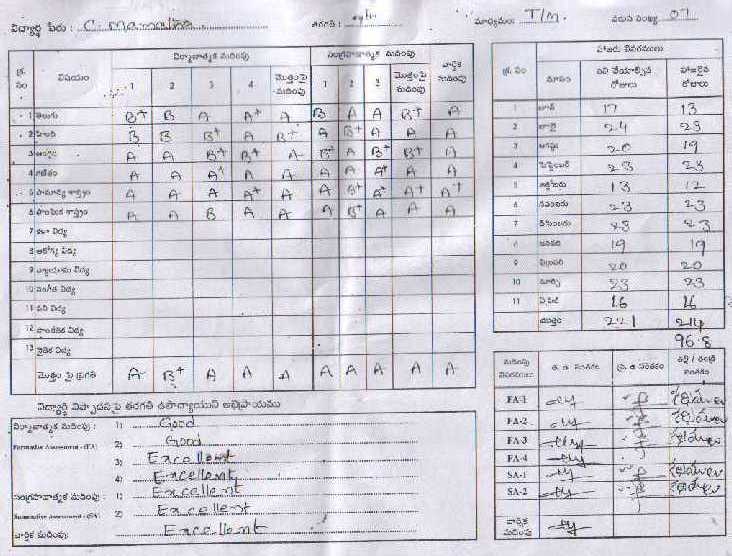 విద్యార్థి పేరు : C. mamatha తరగతి : మాధ్యమం: T/M. వరుస సంఖ్య 07
నిర్మాణాత్మక మదింపు సంగ్రహణాత్మక మదింపు వార్షిక మదింపు
క్ర. సం విషయం 1 2 3 4 మొత్తంపై మదింపు 1 2 3 మొత్తంపై మదింపు
1 తెలుగు B+ B A A+ A B A A B+ A
2 హిందీ B B B+ A B+ A B+ A A A
3 ఆంగ్లం A A B+ B+ A B+ A B+ B+ A
4 గణితం A A A+ A A A A A+ A A
5 సామాన్య శాస్త్రం A A A A+ A A B+ A+ A+ A+
6 సాంఘిక శాస్త్రం A A B A A A B+ A A A
7 కళా విద్య
8 ఆరోగ్య విద్య
9 వ్యాయామ విద్య
10 సంగీత విద్య
11 పని విద్య
12 సాంకేతిక విద్య
13 నైతిక విద్య
మొత్తం పై ప్రగతి A B+ A A A A A A A A
హాజరు వివరములు
క్ర. సం మాసం పని చేయాల్సిన రోజులు హాజరైన రోజులు
1 జూన్ 17 13
2 జూలై 24 23
3 ఆగష్టు 20 19
4 సెప్టెంబర్ 23 23
5 అక్టోబరు 13 12
6 నవంబరు 23 23
7 డిసెంబరు 23 23
8 జనవరి 19 19
9 ఫిబ్రవరి 20 20
10 మార్చి 23 23
11 ఏప్రిల్ 16 16
మొత్తం 221 214
96.8
మదింపు వివరములు త. ఉ సంతకం ప్ర. ఉ సంతకం తల్లి / తండ్రి సంతకం
FA-1
FA-2
FA-3
FA-4
SA-1
SA-2
వార్షిక మదింపు
విద్యార్థి నిష్పాదనపై తరగతి ఉపాధ్యాయుని అభిప్రాయము
నిర్మాణాత్మక మదింపు : 1) Good
Formative Assessment - (FA) 2) Good
3) Excellent
4) Excellent
సంగ్రహణాత్మక మదింపు : 1) Excellent
Summative Assessment - (SA) 2) Excellent
వార్షిక మదింపు Excellent